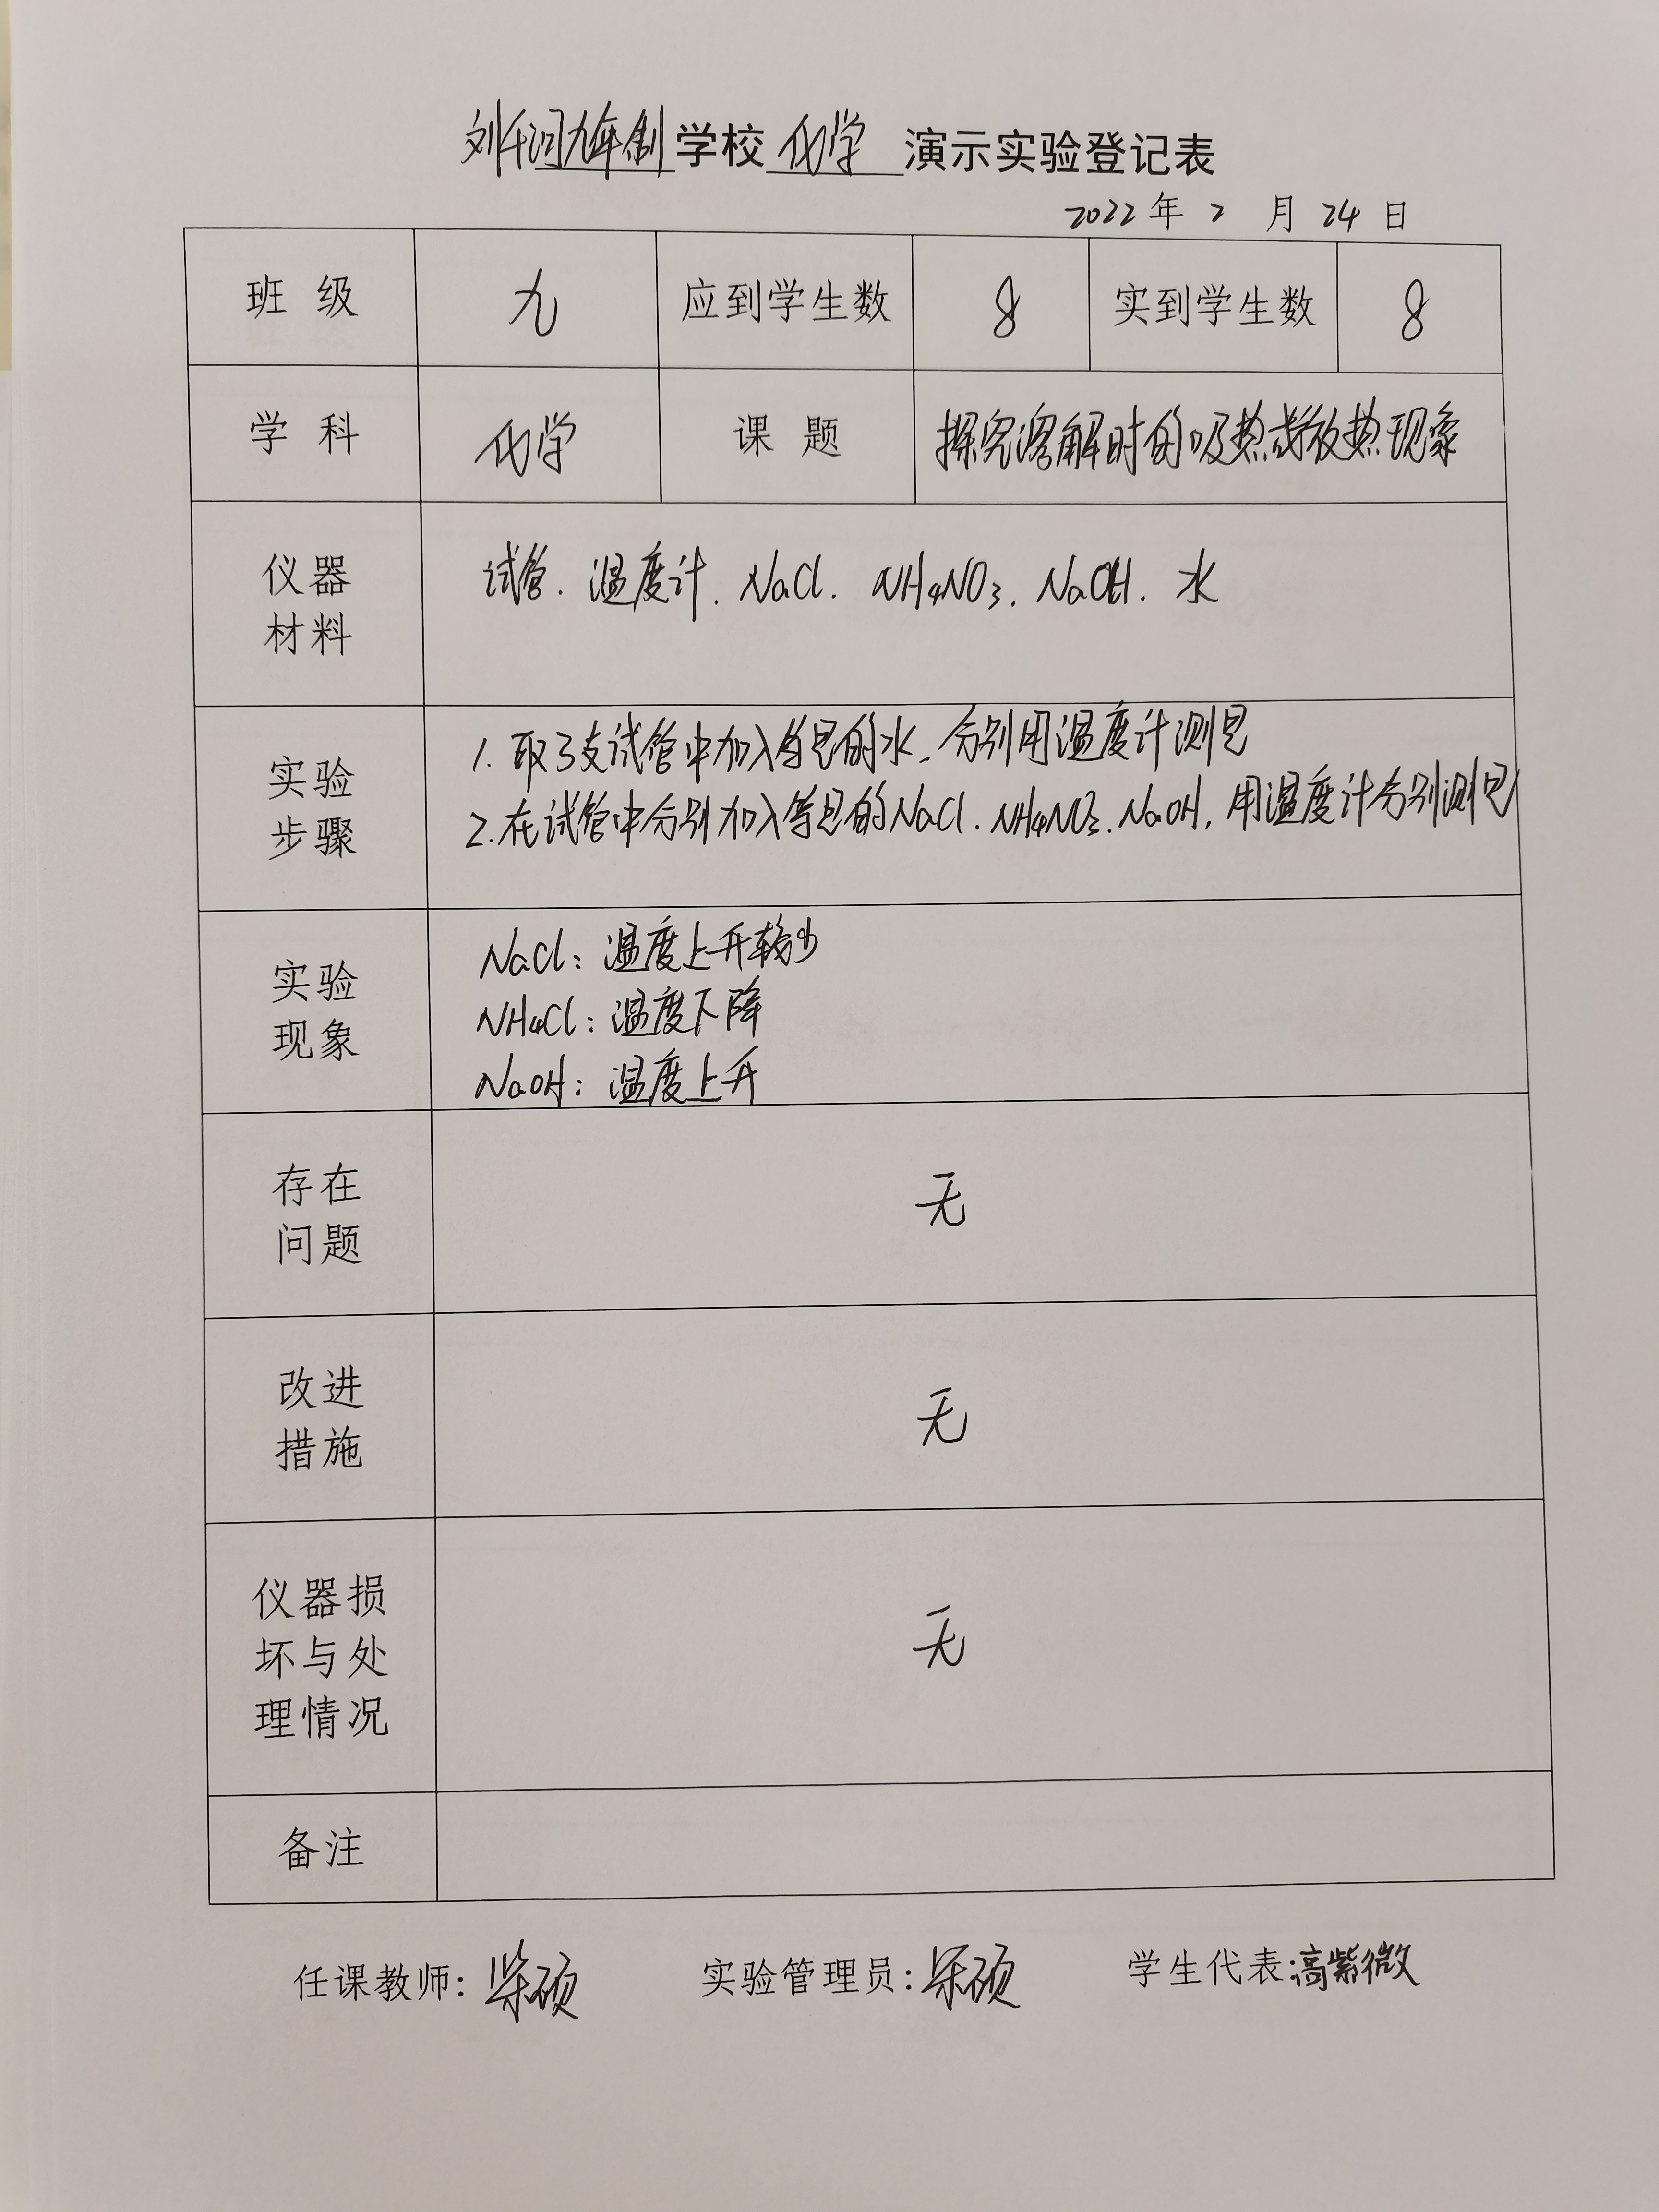 刘千河九年制学校 化学 演示实验登记表
2022年 2 月 24 日
班 级 九 应到学生数 8 实到学生数 8
学 科 化学 课 题 探究溶解时的吸热或放热现象
仪器
材料
试管. 温度计. NaCl. NH4NO3. NaOH. 水
实验
步骤
1. 取3支试管中加入等量的水, 分别用温度计测量
2. 在试管中分别加入等量的NaCl. NH4NO3. NaOH, 用温度计分别测量
实验
现象
NaCl: 温度上升较少
NH4Cl: 温度下降
NaOH: 温度上升
存在
问题
无
改进
措施
无
仪器损
坏与处
理情况
无
备注
任课教师: 硕 实验管理员: 硕 学生代表: 高紫微